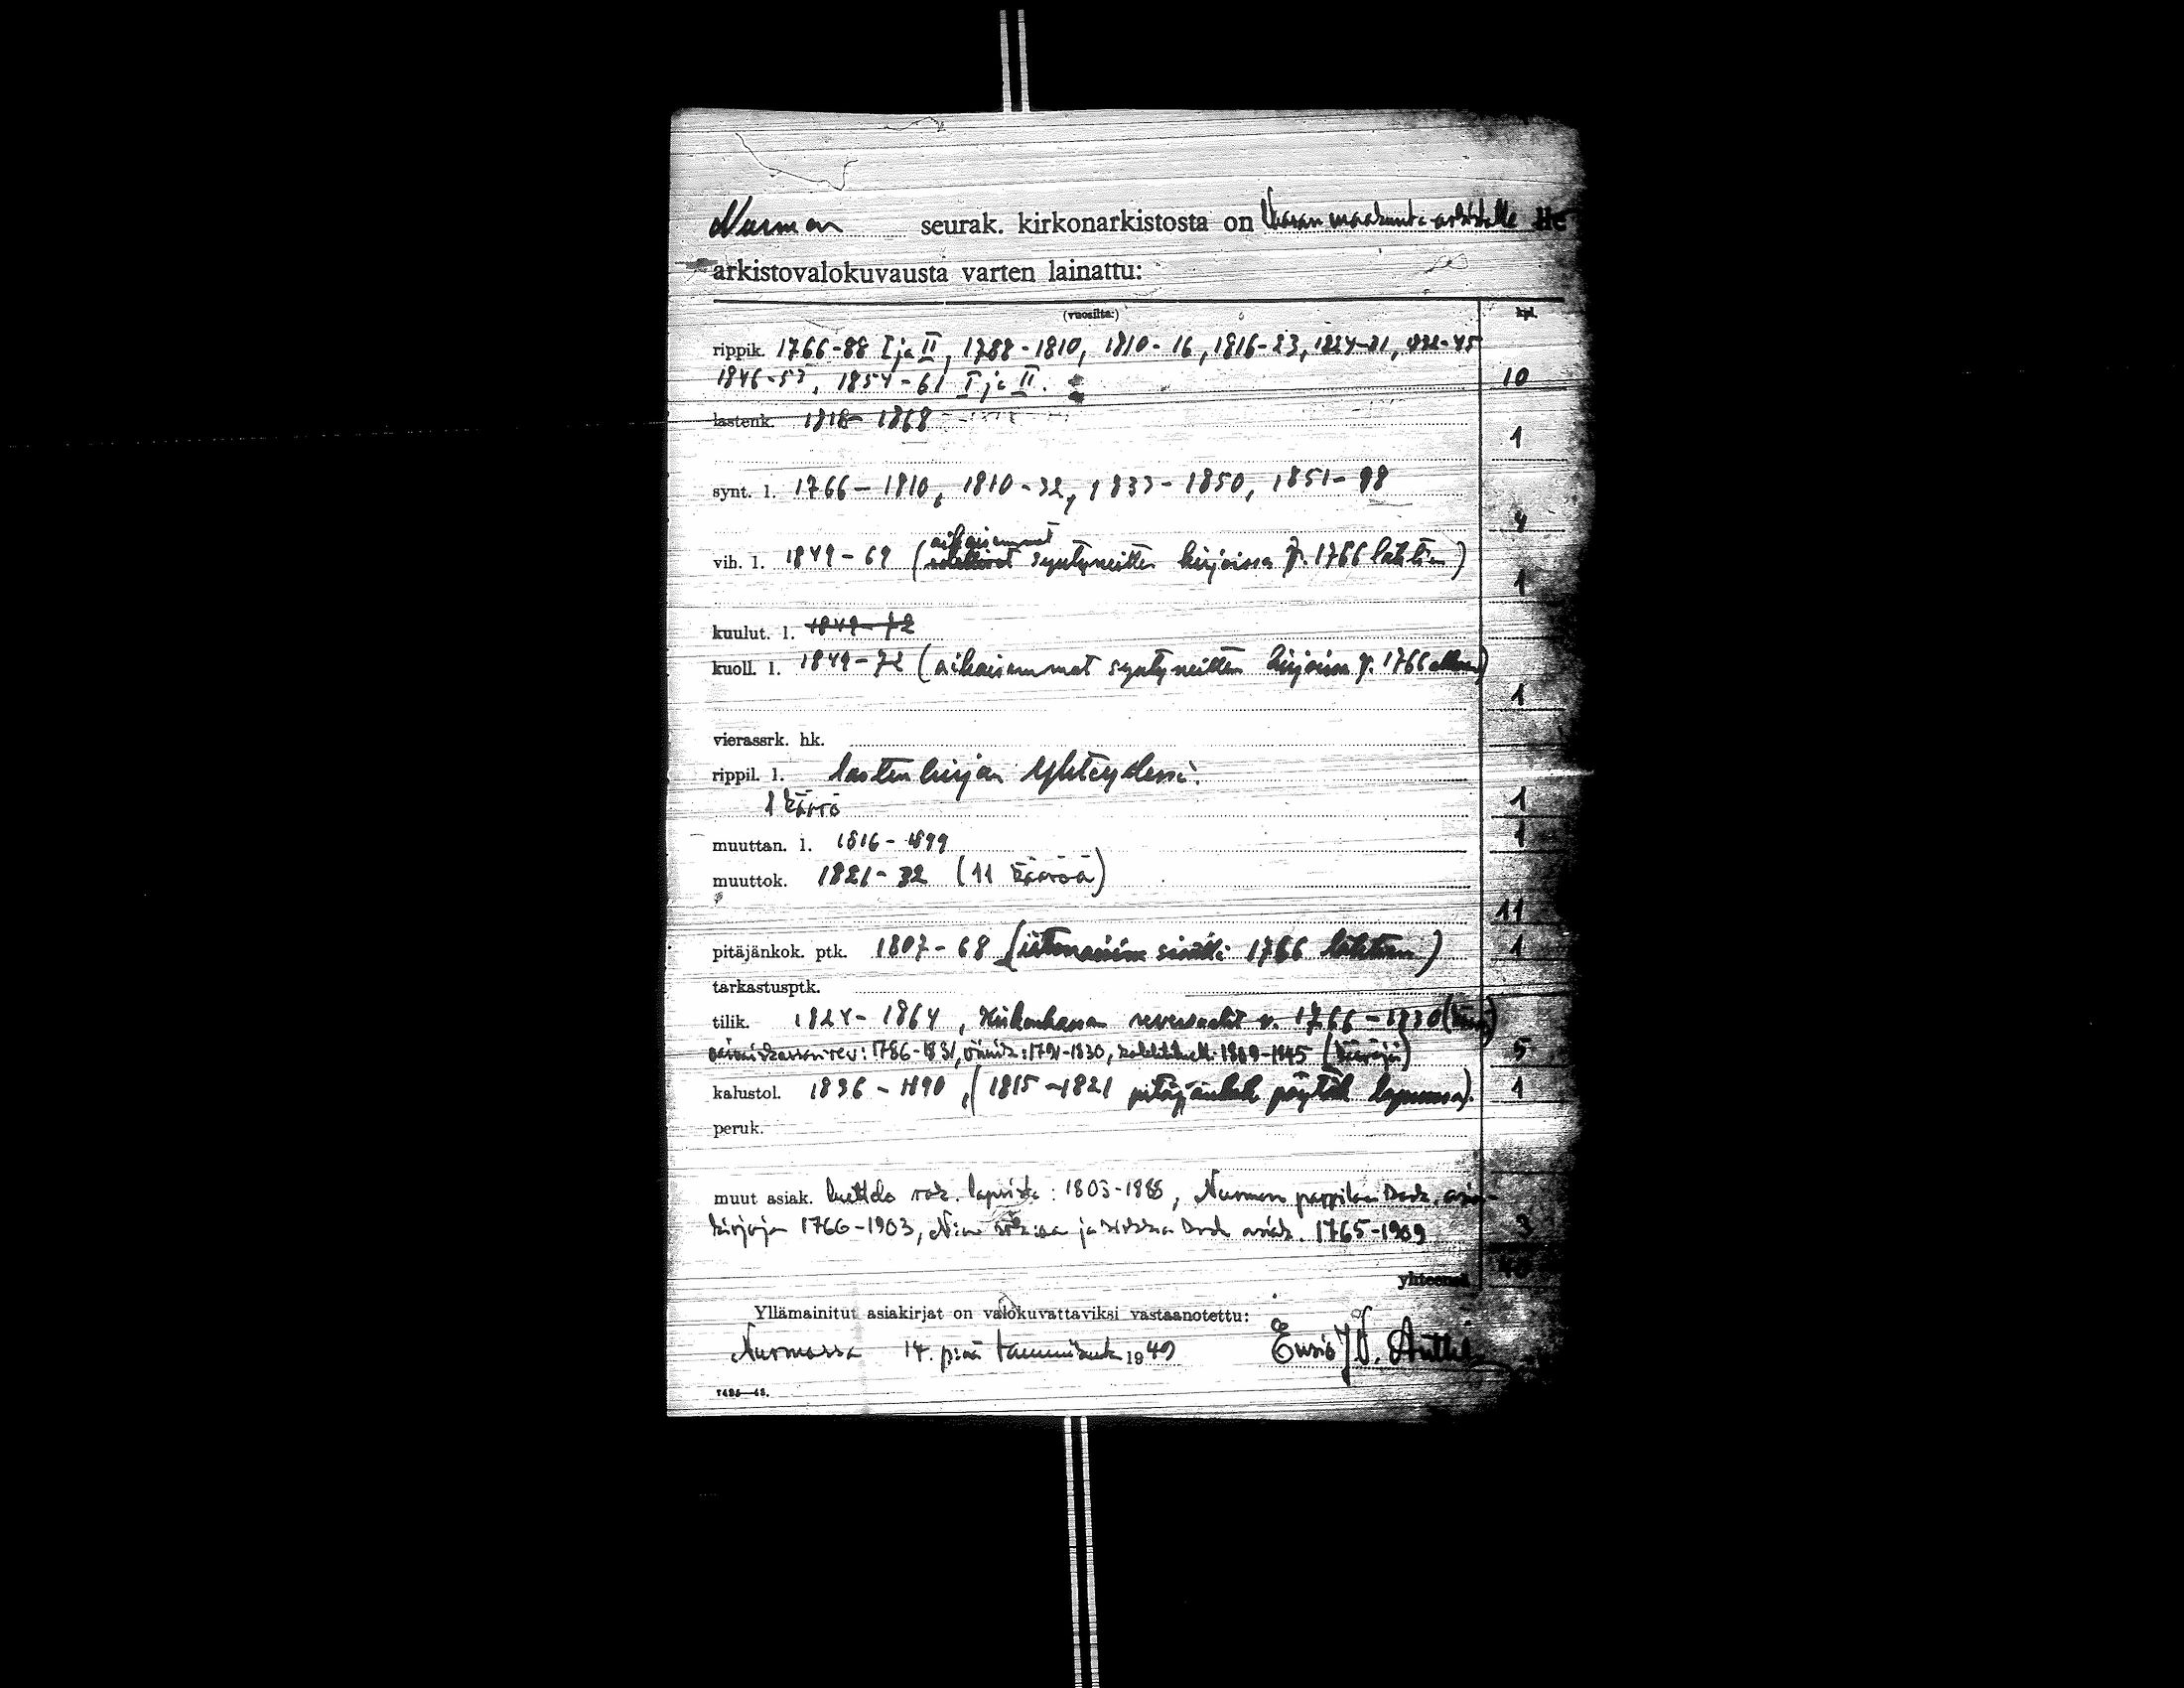 Nurmon seurak. kirkonarkistosta on Vaasan maakunta-arkistolle lle
arkistovalokuvausta varten lainattu:
(vuosilta:) kpl.
rippik. 1766-88 I ja II, 1788-1810, 1810-16, 1816-23, 1824-31, 1832-45
1846-53, 1854-61 I ja II. 10
lastenk. 1818-1868
1
synt. l. 1766-1810, 1810-32, 1833-1850, 1851-98
4
aikaisemmat
vih. l. 1849-69 ( syntyneitten kirjoissa v. 1766 lähtien)
1
kuulut. l. 1849-72
kuoll. l. 1849-72 (aikaisemmat syntyneitten kirjoissa v. 1766 alkaen)
1
vierassrk. hk.
rippil. l. lastenkirjan yhteydessä.
1 käärö 1
muuttan. l. 1816-1899 1
muuttok. 1821-32 (11 kääröä)
11
pitäjänkok. ptk. 1807-68 ( 1766 lähtien) 1
tarkastusptk.
tilik. 1824-1864, Kirkonkassan reversaalit v. 1766-1830
1786-1831, 1791-1830, 1809-1845 5
kalustol. 1836-1890, (1815-1821 pitäjänkok. pöytäk. lopussa). 1
peruk.
muut asiak. luettelo rok. lapsista: 1803-1885, Nurmon pappilan
kirjoja 1766-1903, ja 1765-1909 3
yhteensä
Yllämainitut asiakirjat on valokuvattaviksi vastaanotettu:
Nurmossa 14. p:nä tammikuuta 1949 Ensio